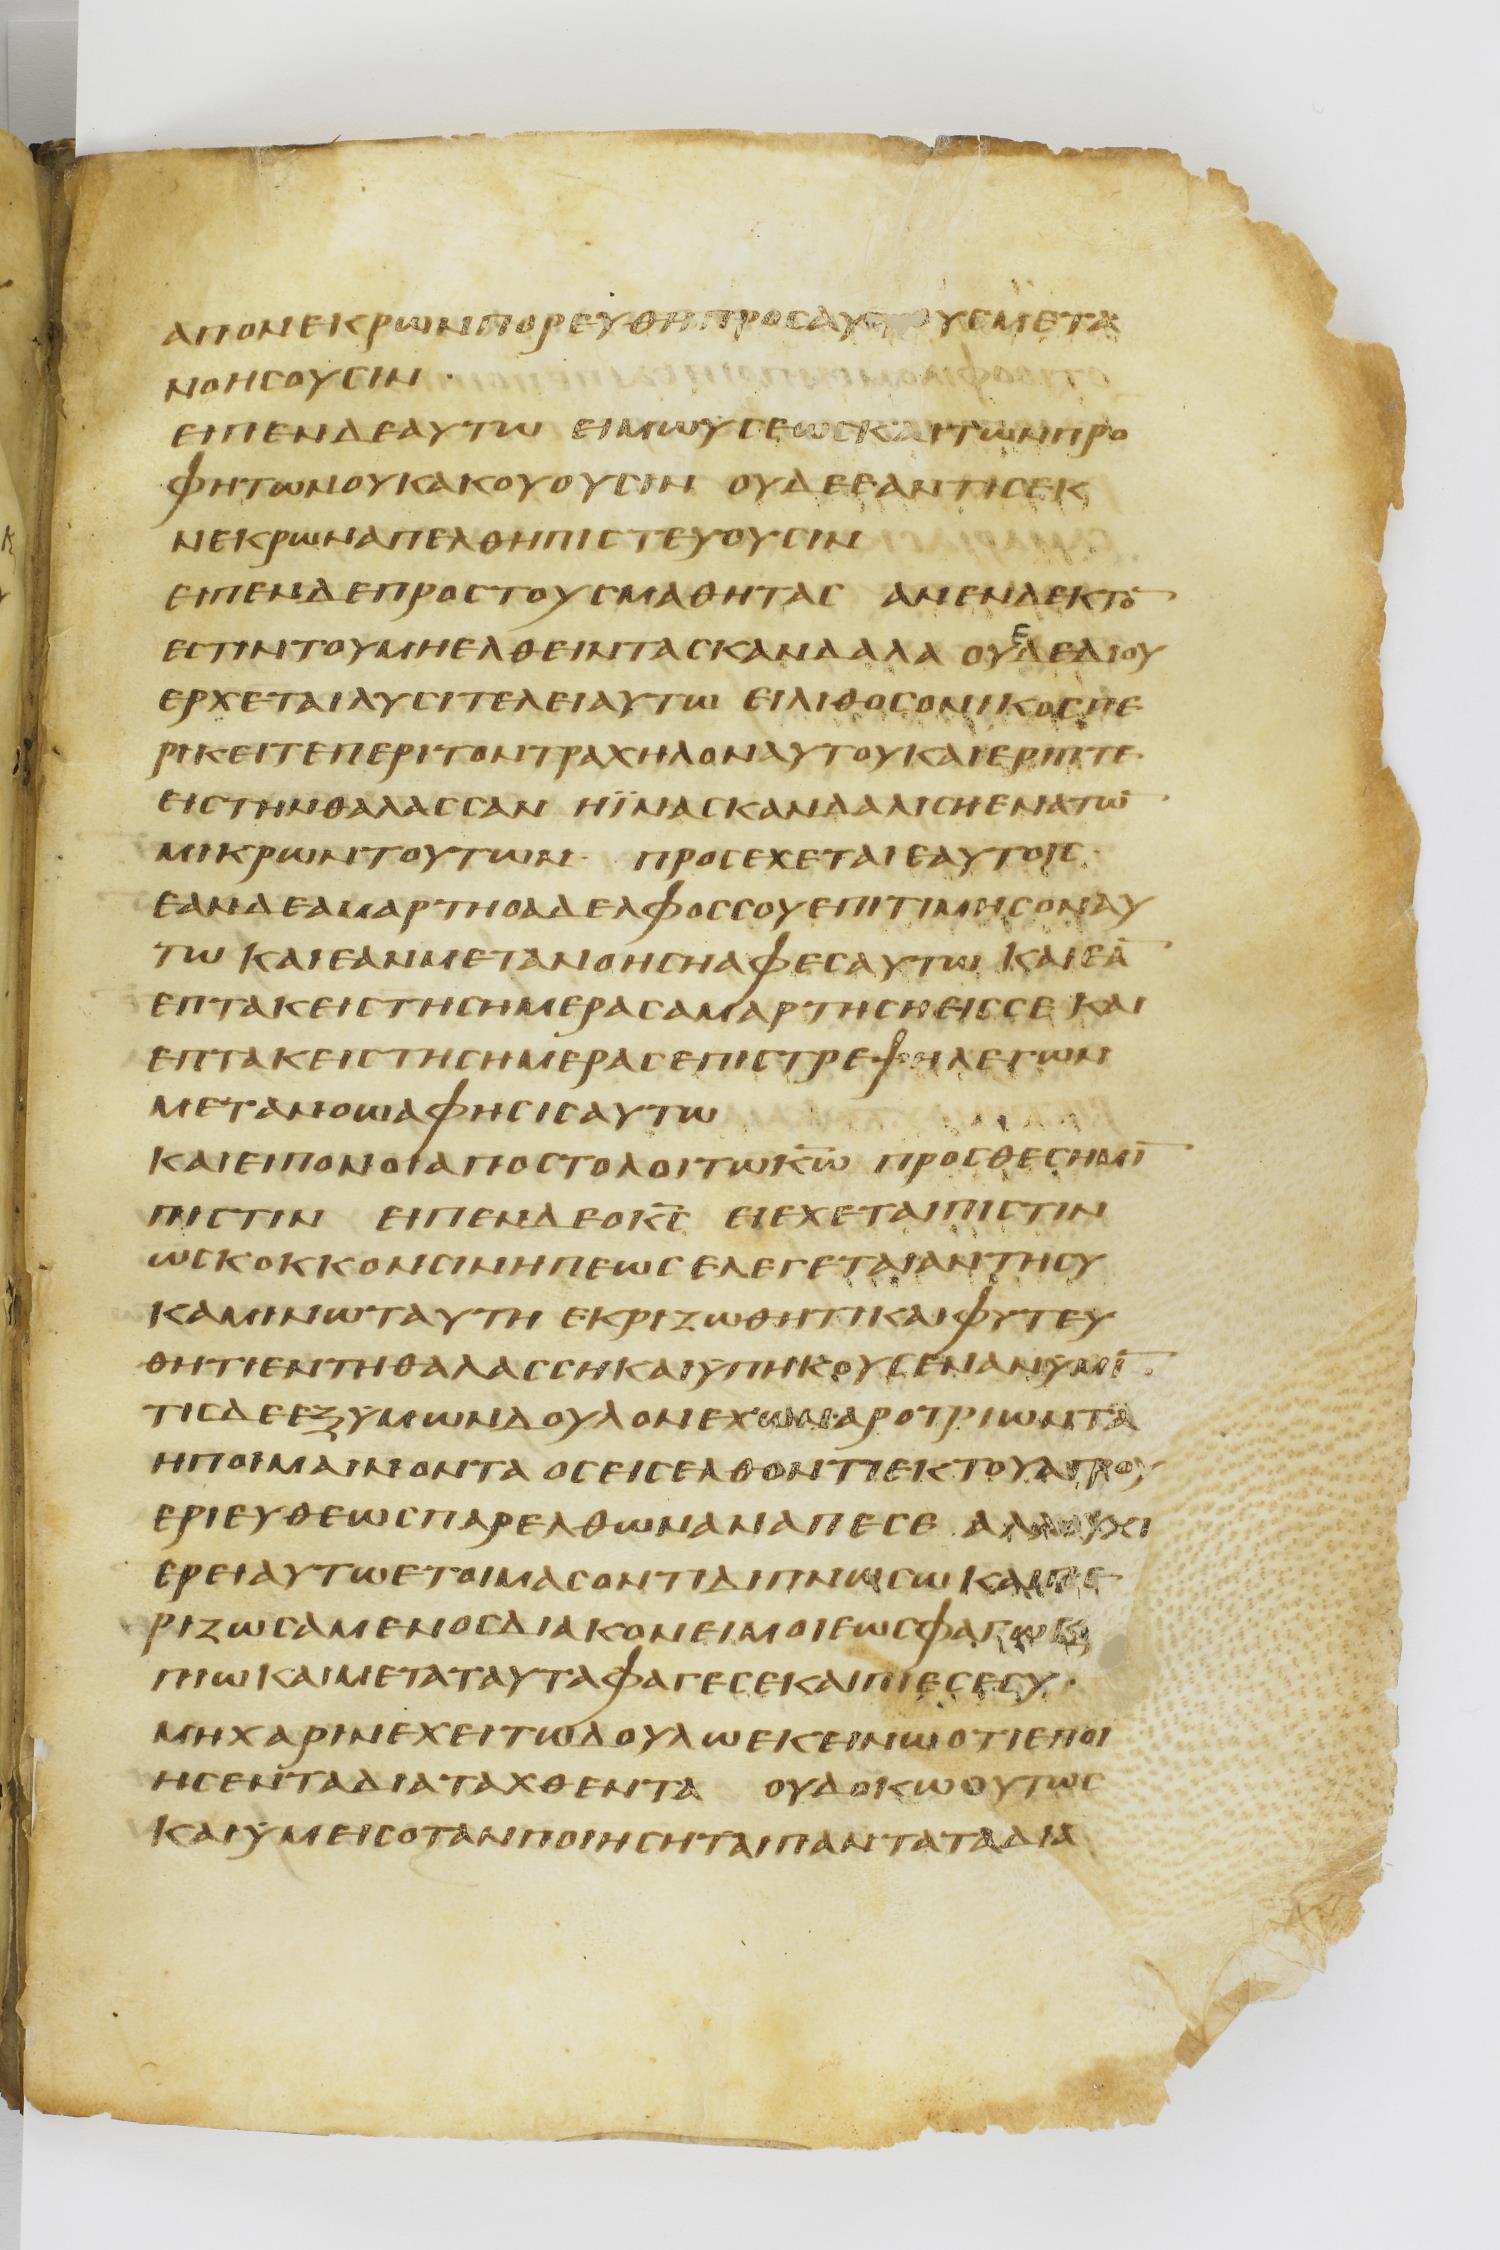 ΑΠΟΝΕΚΡΩΝΠΟΡΕΥΘΗΠΡΟΣΑΥΤΟΥΣΜΕΤΑ
ΝΟΗΣΟΥΣΙΝ ·
ΕΙΠΕΝΔΕΑΥΤΩ ΕΙΜΩΥΣΕΩΣΚΑΙΤΩΝΠΡΟ
ΦΗΤΩΝΟΥΚΑΚΟΥΟΥΣΙΝ ΟΥΔΕΕΑΝΤΙΣΕΚ
ΝΕΚΡΩΝΑΠΕΛΘΗΠΙΣΤΕΥΟΥΣΙΝ
ΕΙΠΕΝΔΕΠΡΟΣΤΟΥΣΜΑΘΗΤΑΣ ΑΝΕΝΔΕΚΤΟ̅
ΕΣΤΙΝΤΟΥΜΗΕΛΘΕΙΝΤΑΣΚΑΝΔΑΛΑ ΟΥΕΔΕΔΙΟΥ
ΕΡΧΕΤΑΙΛΥΣΙΤΕΛΕΙΑΥΤΩ ΕΙΛΙΘΟΣΟΝΙΚΟΣΠΕ
ΡΙΚΕΙΤΕΠΕΡΙΤΟΝΤΡΑΧΗΛΟΝΑΥΤΟΥΚΑΙΕΡΙΠΤΕ·
ΕΙΣΤΗΝΘΑΛΑΣΣΑΝ ΗΪΝΑΣΚΑΝΔΑΛΙΣΗΕΝΑΤΩ̅
ΜΙΚΡΩΝΤΟΥΤΩΝ · ΠΡΟΣΕΧΕΤΑΙΕΑΥΤΟΙΣ ·
ΕΑΝΔΕΑΜΑΡΤΗΟΑΔΕΛΦΟΣΣΟΥΕΠΙΤΙΜΗΣΟΝΑΥ
ΤΩ ΚΑΙΕΑΝΜΕΤΑΝΟΗΣΗΑΦΕΣΑΥΤΩ ΚΑΙΕΑ̅
ΕΠΤΑΚΕΙΣΤΗΣΗΜΕΡΑΣΑΜΑΡΤΗΣΗΕΙΣΣΕ ΚΑΙ
ΕΠΤΑΚΕΙΣΤΗΣΗΜΕΡΑΣΕΠΙΣΤΡΕΦΗΛΕΓΩΝ
ΜΕΤΑΝΟΩΑΦΗΣΙΣΑΥΤΩ
ΚΑΙΕΙΠΟΝΟΙΑΠΟΣΤΟΛΟΙΤΩΚ̅Ω̅ ΠΡΟΣΘΕΣΗΜΙ̅
ΠΙΣΤΙΝ ΕΙΠΕΝΔΕΟΚ̅Σ̅ ΕΙΕΧΕΤΑΙΠΙΣΤΙΝ
ΩΣΚΟΚΚΟΝΣΙΝΗΠΕΩΣΕΛΕΓΕΤΑΙΑΝΤΗΣΥ
ΚΑΜΙΝΩΤΑΥΤΗ ΕΚΡΙΖΩΘΗΤΙΚΑΙΦΥΤΕΥ
ΘΗΤΙΕΝΤΗΘΑΛΑΣΣΗΚΑΙΫΠΗΚΟΥΣΕΝΑΝΫΜΙ̅
ΤΙΣΔΕΕΞΫΜΩΝΔΟΥΛΟΝΕΧΩΝΑΡΟΤΡΙΩΝΤΑ
ΗΠΟΙΜΑΙΝΟΝΤΑ ΟΣΕΙΣΕΛΘΟΝΤΙΕΚΤΟΥΑΓΡΟΥ
ΕΡΙΕΥΘΕΩΣΠΑΡΕΛΘΩΝΑΝΑΠΕΣΕ ΑΛΛΟΥΧΙ
ΕΡΕΙΑΥΤΩΕΤΟΙΜΑΣΟΝΤΙΔΙΠΝΗΣΩ ΚΑΙΠΕ
ΡΙΖΩΣΑΜΕΝΟΣΔΙΑΚΟΝΕΙΜΟΙΕΩΣΦΑΓΩΚΑΙ
ΠΙΩ ΚΑΙΜΕΤΑΤΑΥΤΑΦΑΓΕΣΕΚΑΙΠΙΕΣΕΣΥ ·
ΜΗΧΑΡΙΝΕΧΕΙΤΩΔΟΥΛΩΕΚΕΙΝΩΟΤΙΕΠΟΙ
ΗΣΕΝΤΑΔΙΑΤΑΧΘΕΝΤΑ ΟΥΔΟΚΩΟΥΤΩΣ
ΚΑΙΫΜΕΙΣΟΤΑΝΠΟΙΗΣΗΤΑΙΠΑΝΤΑΤΑΔΙΑ